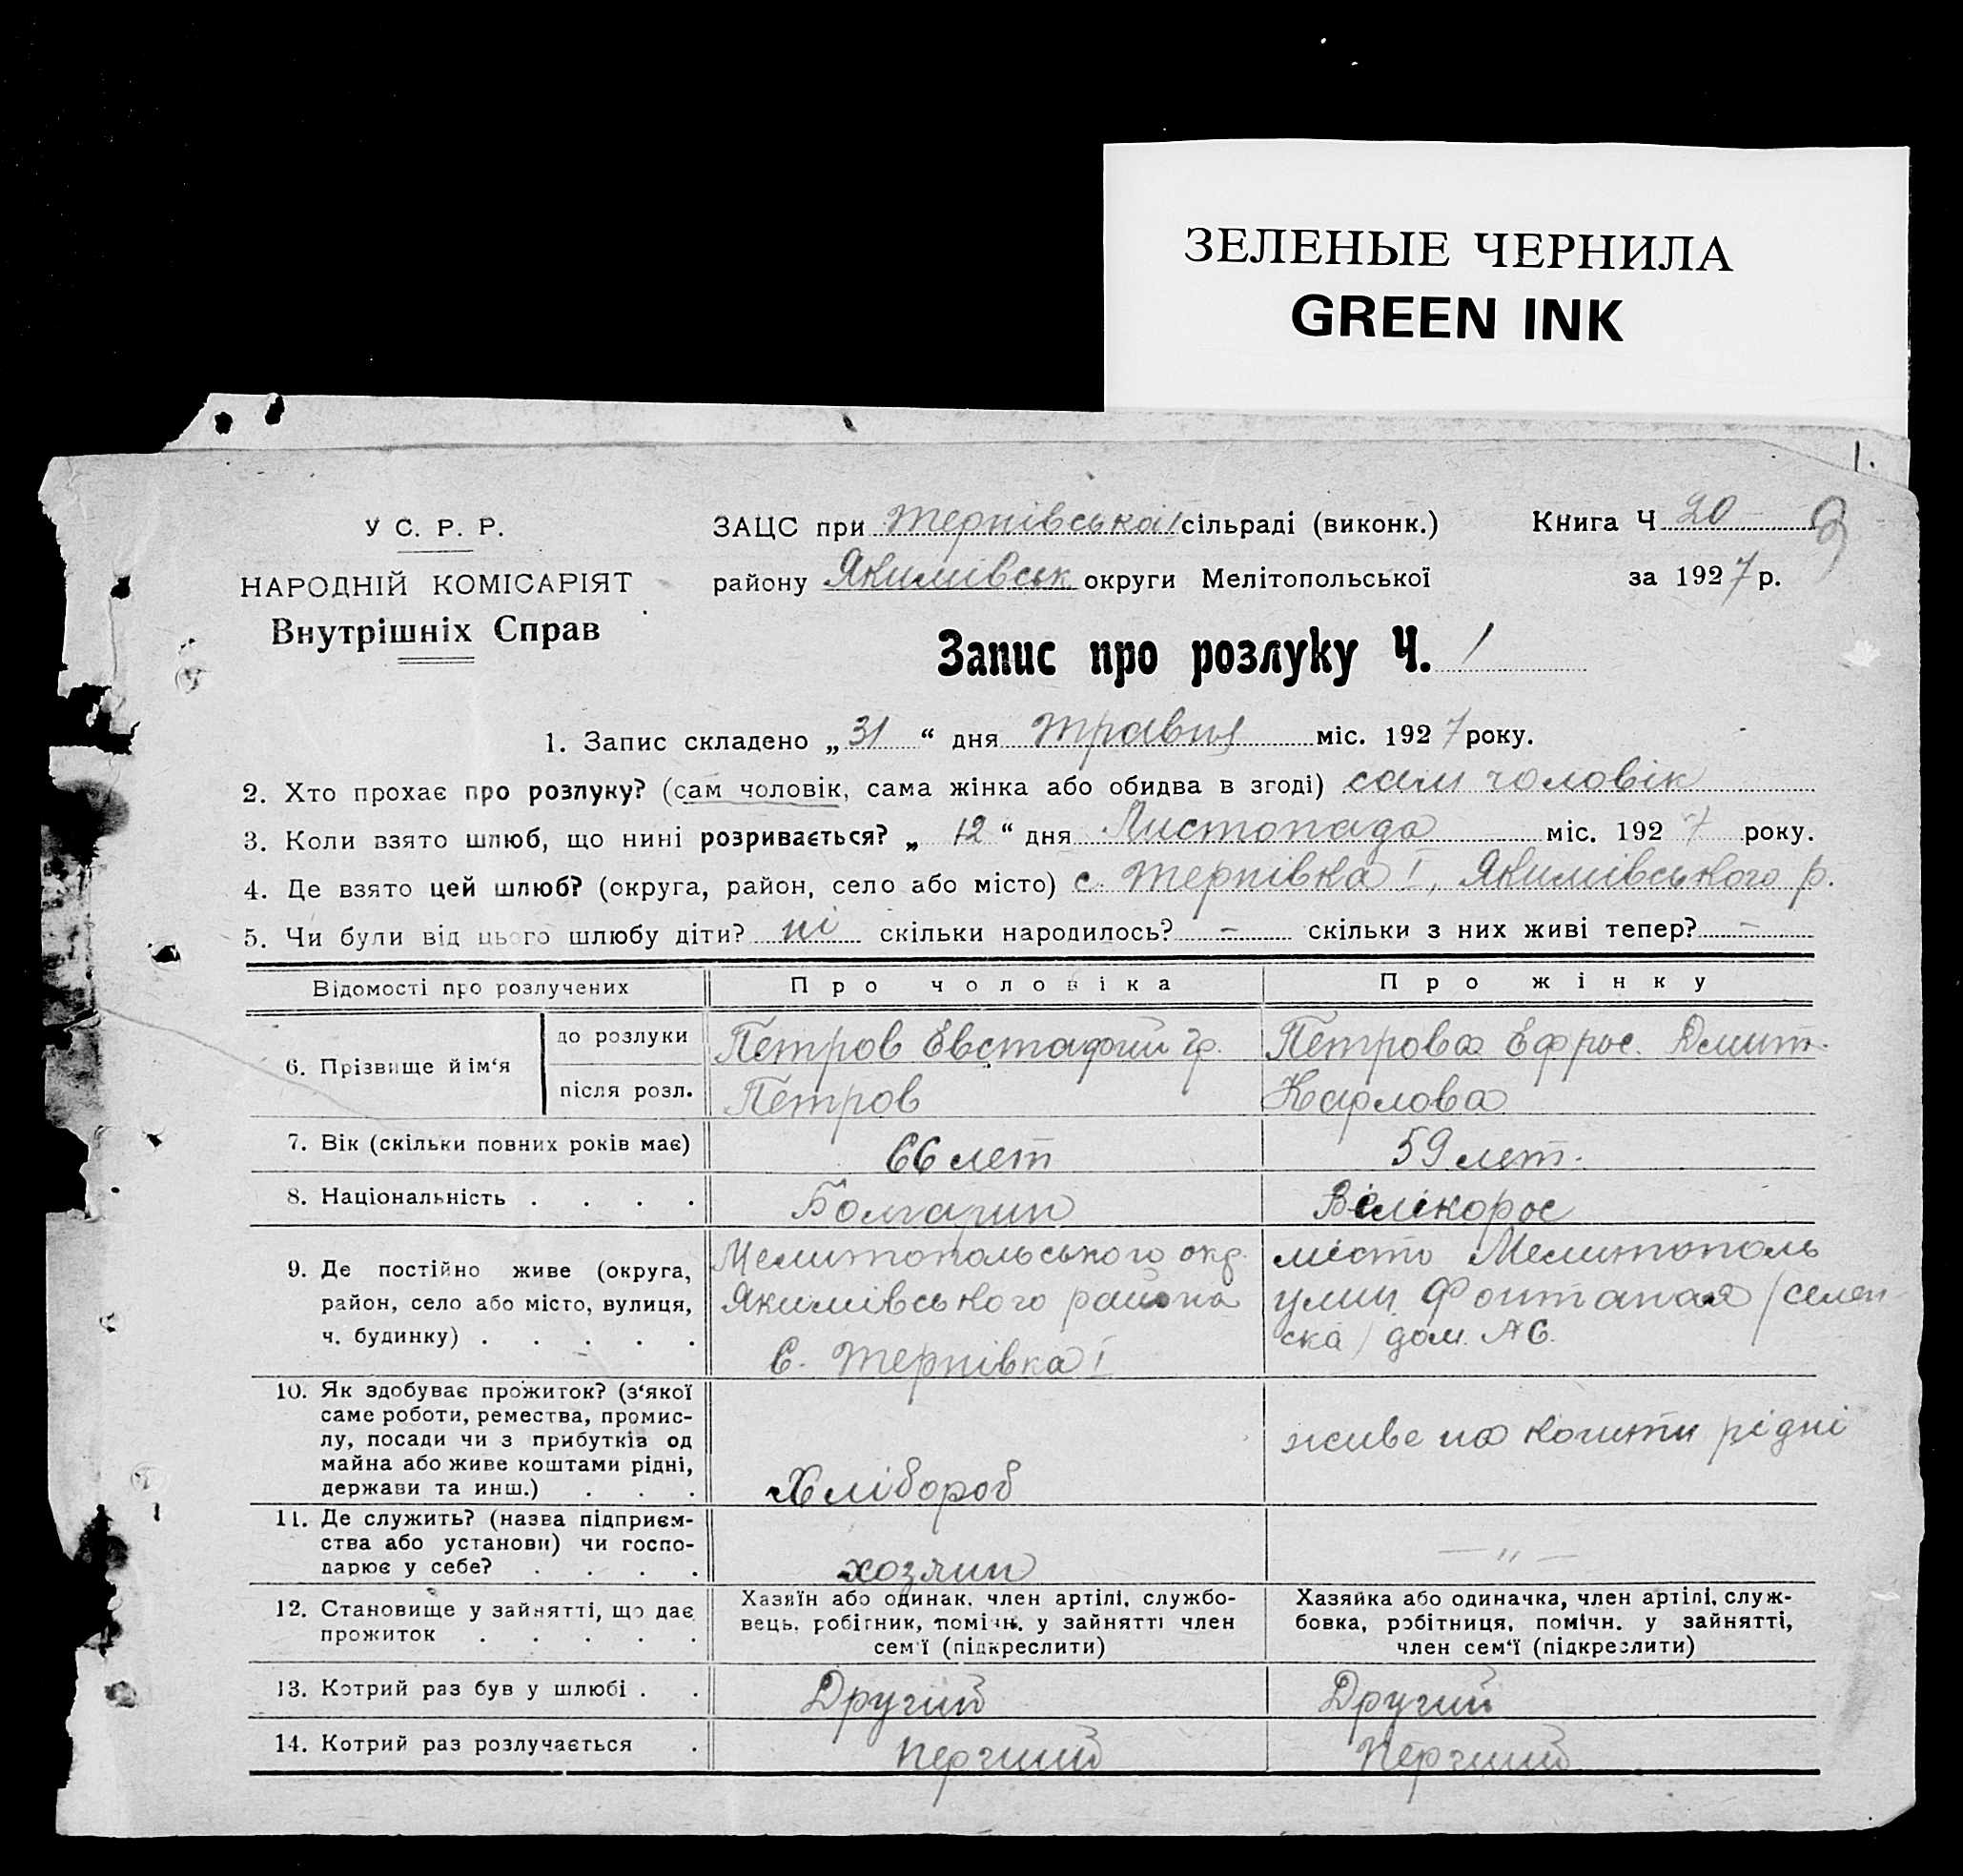 ЗЕЛЕНЫЕ ЧЕРНИЛА
GREEN INK
1.
У С. Р. Р.
НАРОДНІЙ КОМІСАРІЯТ
Внутрішніх Справ
ЗАЦС при Терпівська I сільраді (виконк.)
Книга Ч 20
району Якимівськ округи Мелітопольської
за 1927 р.
Запис про розлуку Ч. 1
1. Запис складено „31“ дня травня міс. 1927 року.
2. Хто прохає про розлуку? (сам чоловік, сама жінка або обидва в згоді) сам чоловік
3. Коли взято шлюб, що нині розривається? „12“ дня Листопада міс. 192 7 року.
4. Де взято цей шлюб? (округа, район, село або місто) с. Терпівка I, Якимівського р.
5. Чи були від цього шлюбу діти? ні скільки народилось? – скільки з них живі тепер? –
Відомості про розлучених
Про чоловіка
Про жінку
6. Прізвище й ім‘я
до розлуки
Петров Евстафий Гр.
Петрова Ефрос. Дмит.
після розл.
Петров
Карлова
7. Вік (скільки повних років має)
66 лет
59 лет.
8. Національність . . . .
Болгарин
Велікорос
9. Де постійно живе (округа,
район, село або місто, вулиця,
ч. будинку) . . . . .
Мелитопольського окр.
Якимівського района
с. Терпівка I
місто Мелитополь
улиц. Фонтаная /селен-
ска/ дом. № 6.
10. Як здобуває прожиток? (з‘якої
саме роботи, ремества, промис-
лу, посади чи з прибутків од
майна або живе коштами рідні,
держави та инш.) . . .
Хлібороб
живе на кошти рідні
11. Де служить? (назва підприєм-
ства або установи) чи госпо-
дарює у себе? . . . .
хозяин
— „ —
12. Становище у зайнятті, що дає
прожиток . . . . .
Хазяїн або одинак. член артілі, службо-
вець, робітник, помічн. у зайнятті член
сем‘ї (підкреслити)
Хазяйка або одиначка, член артілі, служ-
бовка, робітниця, помічн. у зайнятті,
член сем‘ї (підкреслити)
13. Котрий раз був у шлюбі . .
Другий
Другий
14. Котрий раз розлучається .
перший
перший